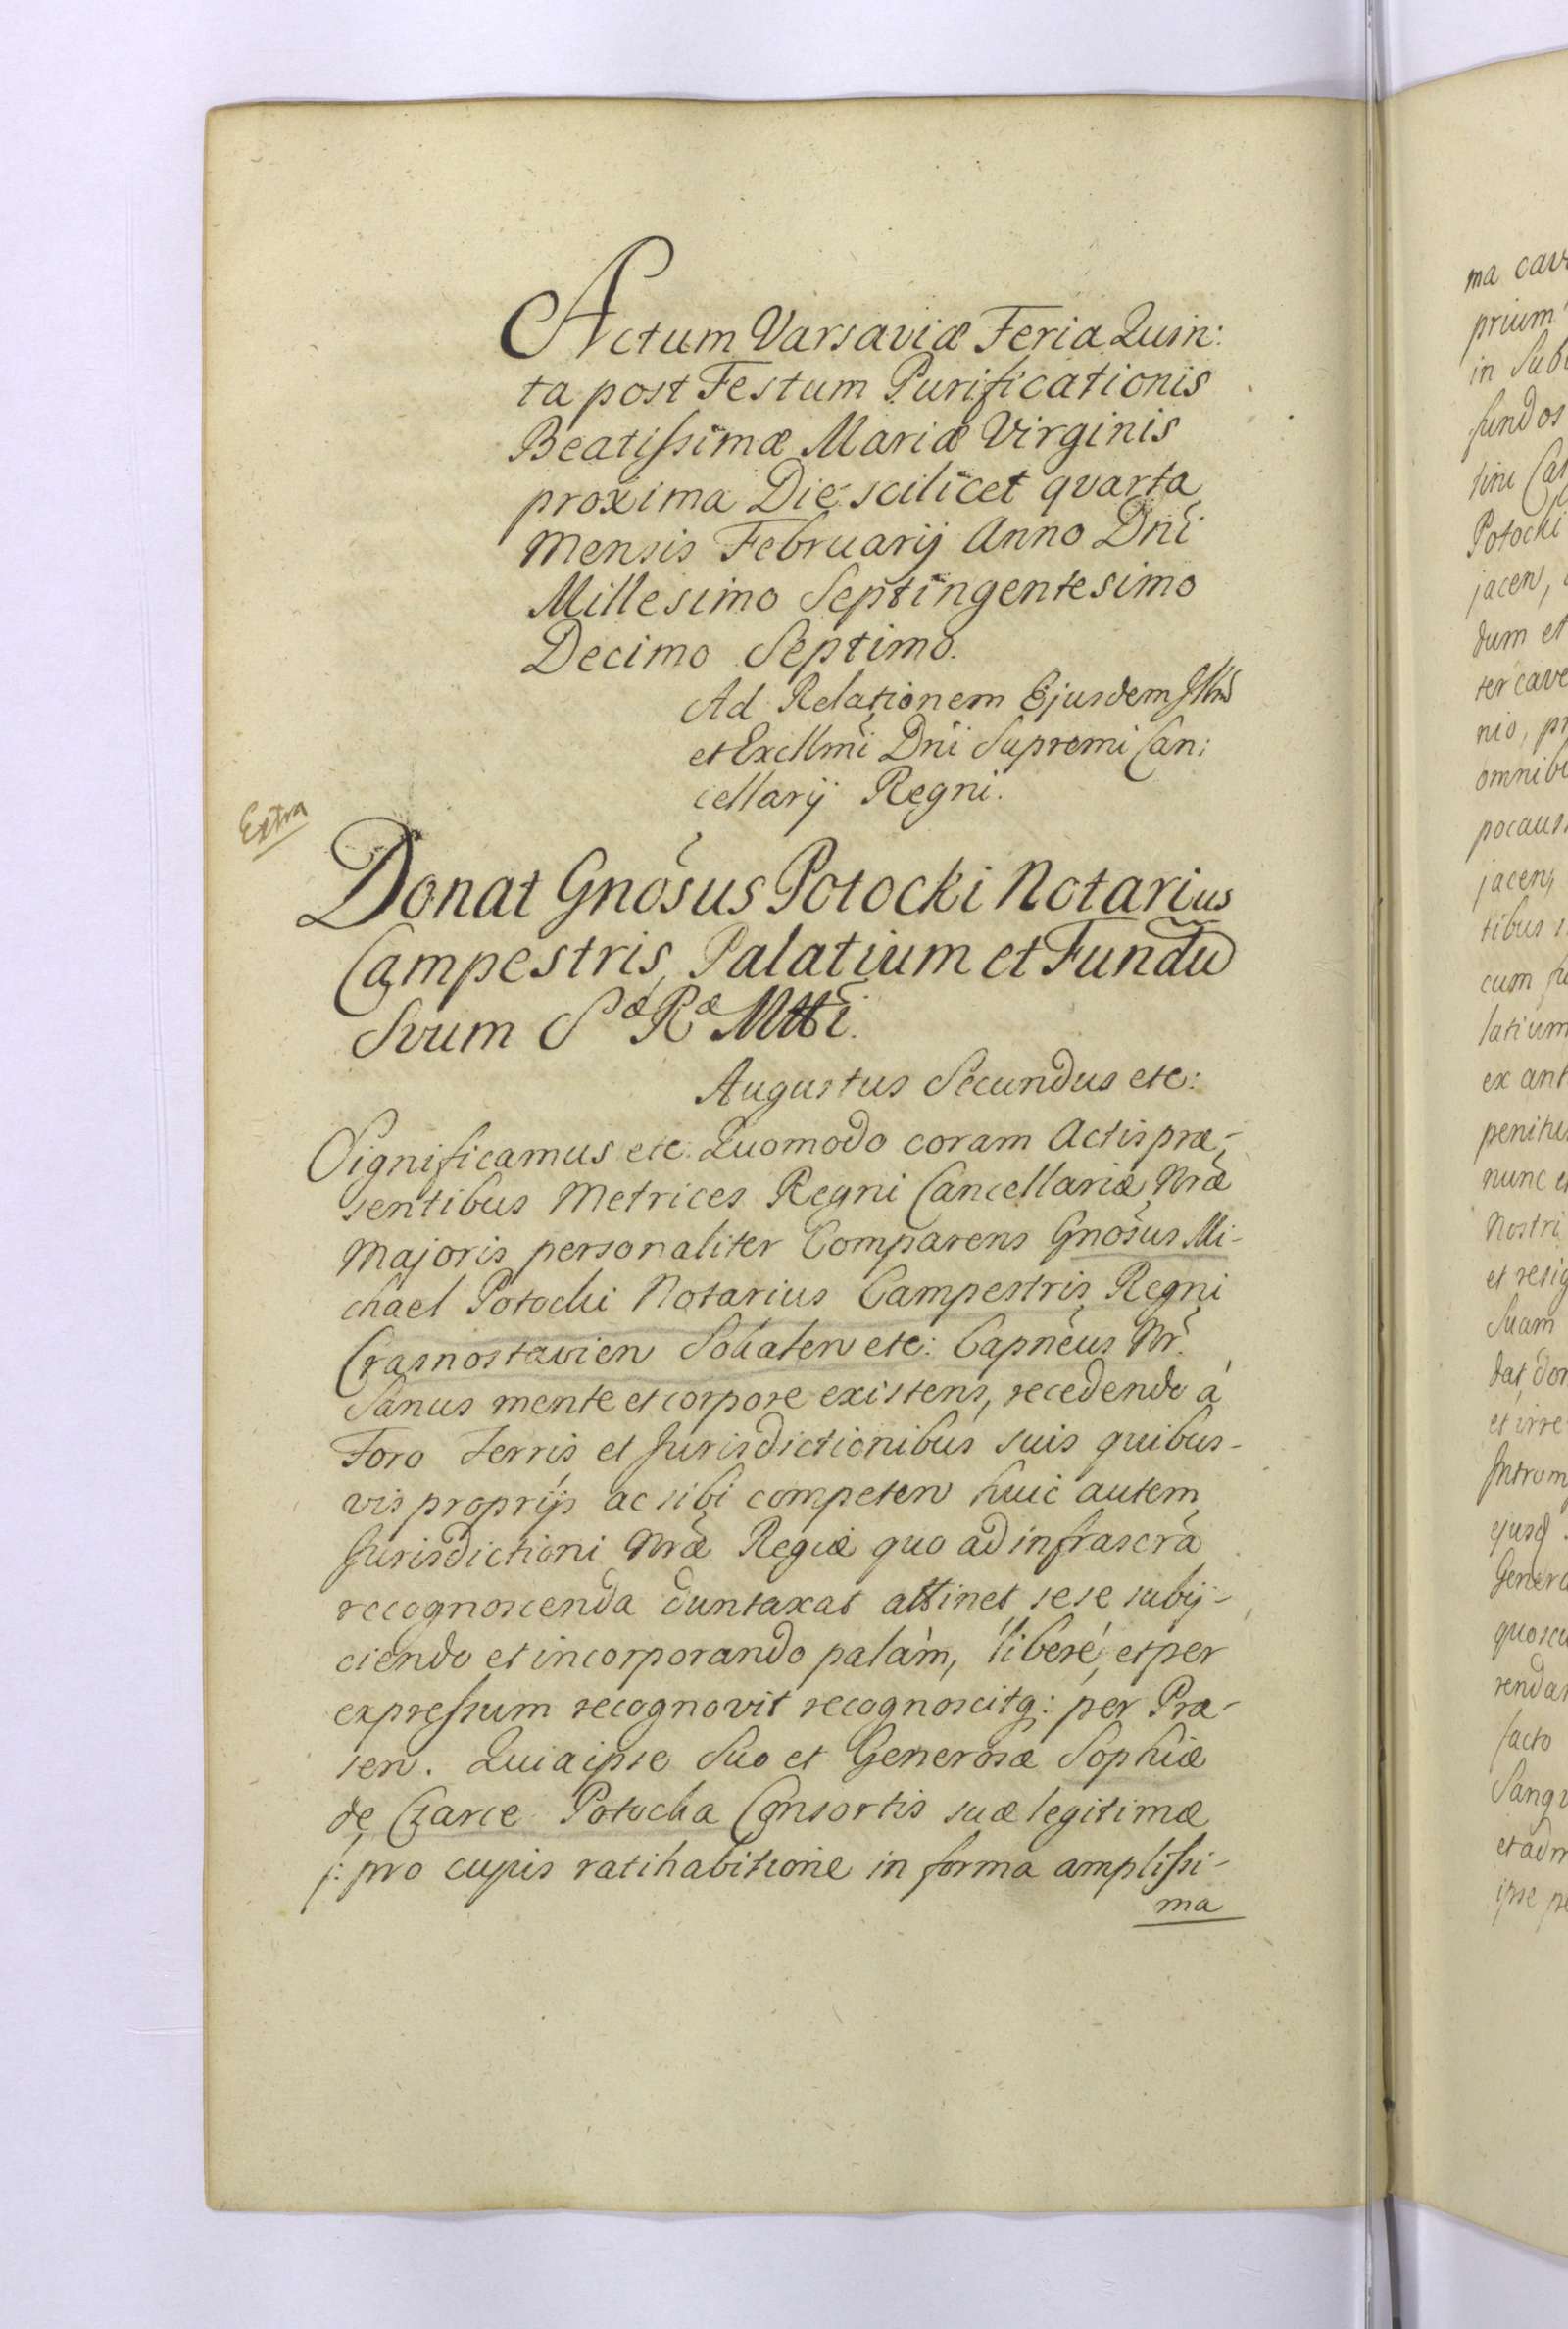 Actum Varsaviæ Feria Quin:
ta post Festum Purificationis
Beatissimæ Mariæ Virginis
proxima Die scilicet quarta
Mensis Februarij Anno Dni
Millesimo Septingentesimo
Decimo Septimo.
Ad Relationem Ejusdem Illmi
et Excllmi Dni Supremi Can:
cellarij Regni.
Extra
Donat Gnosus Potocki Notarius
Campestris, Palatium et Fundu
Suum Sæ Ræ Mtti.
Augustus Secundus etc:
Significamus etc: Quomodo coram Actis præ-
sentibus Metrices Regni Cancellariæ Nræ
Majoris personaliter Comparens Gnosus Mi-
chael Potocki Notarius Campestris Regni
Crasnostavien Sokalen etc: Capneus Nr.
Sanus mente et corpore existens, recedendo á
Foro Terris et Jurisdictionibus suis quibus-
vis proprijs ac sibi competen huic autem
Jurisdictioni Nræ Regiæ quo ad infrascra
recognoscenda duntaxat attinet sese subij-
ciendo et incorporando palàm, liberé, et per
expressum recognovit recognoscitq: per Præ-
sen. Quia ipse Suo et Generosæ Sophiæ
de Czarne Potocka Consortis suæ legitimæ
/: pro cujus ratihabitione in forma amplissi-
ma
ma cav
prium
in Sub
fundos
tini Cas
Potocki
jacen,
dum et
ter cave
nio, pr
omnib
pocaus
jacen,
tibus
cum
latium
ex ant
penitu
nunc e
Nostri
et resig
Suam
dat, don
et irre
Introm
ejusd
Genera
quoscu
renda
facto
Sangv
et adm
ipse pe